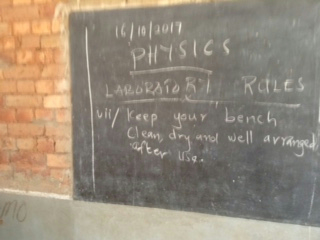 16/10/2019
PHYSICS
LABORATORY RULES
vii/ Keep your bench
Clean, dry and well arranged
after use.